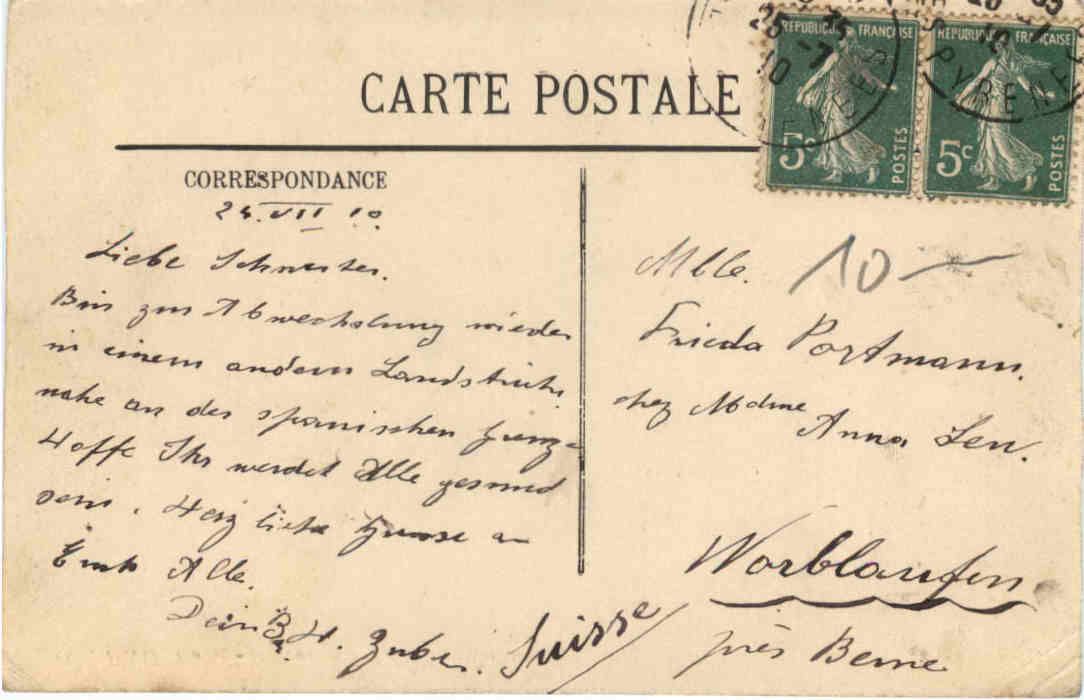 CARTE POSTALE
25 -7 35
10
PYRENEES
REPUBLIQUE FRANÇAISE
5c POSTES
REPUBLIQUE FRANÇAISE
5c POSTES
CORRESPONDANCE
24. VII 10
Liebe Schwester.
Bin zur Abwechslung wieder
in einem andern Landstriche
nahe an der spanischen Grenze
Hoffe Ihr werdet Alle gesund
sein. Herzliche Grüsse an
Euch Alle.
Dein Br. H. Zuber.
10—
Mlle.
Frieda Portmann.
chez Mdme
Anna
Worblaufen
près Berne
Suisse